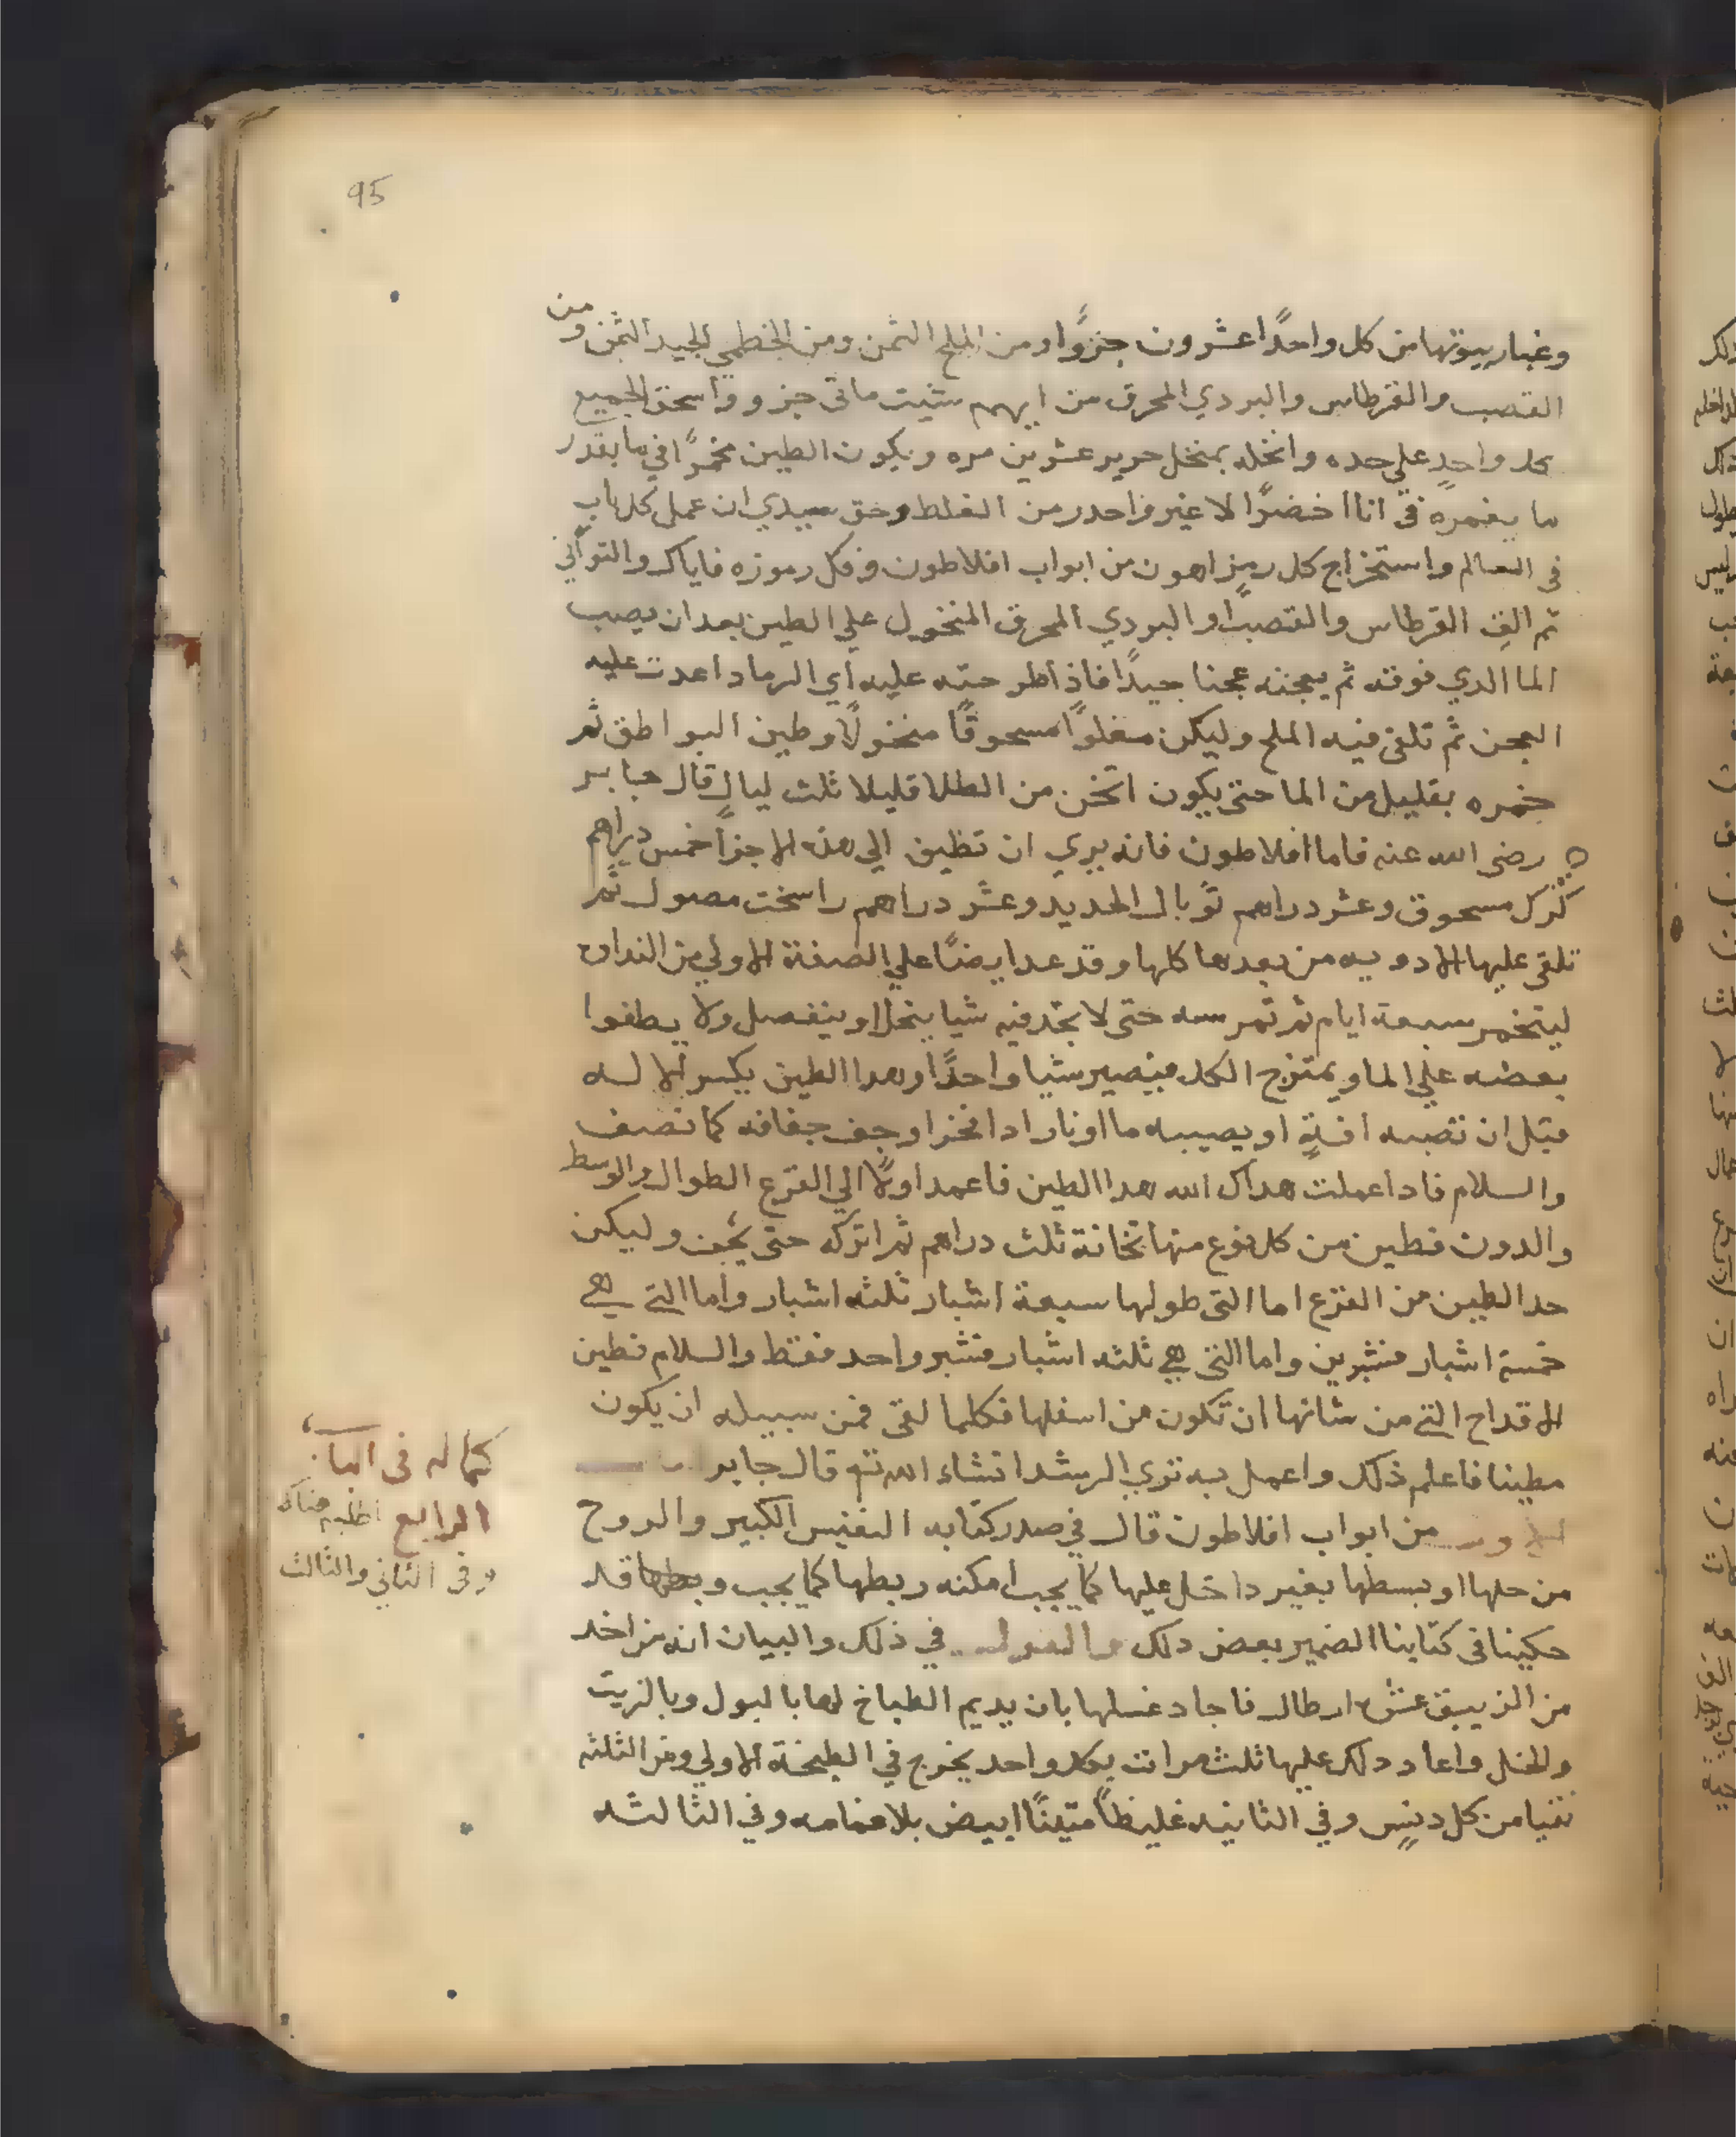 95
وغبار بيوتها من كل واحدًا عشرون جزوًا ومن الملح الثمن ومن الخطمي الجيد الثمن ومن
القصب والقرطاس والبردي المحرق من ايهم شيت ماتى جزو واسحق الجميع
كل واحدٍ على حده وانخله بمنخل حرير عشرين مره ويكون الطين مخمرًا في ما بقدر
ما يغمره في انا اخضرًا لا غير واحدر من الغلط وحق سيدي ان عمل كل باب
في العالم واستخراج كل رمزٍ اهون من ابواب افلاطون وفكل رموزه فاياك والتوآني
ثم الق القرطاس والقصبًا والبردي المحرق المنخول علي الطين بعد ان يصب
الما الدي فوقه ثم يعجنه عجنا جيدًا فاذ اطرحته عليه اي الرماد اعدت عليه
العجن ثم تلقى فيه الملح وليكن مغلوًا مسحوقًا منخولًا وطين البواطق ثم
خمره بقليل من الما حتى يكون اثخن من الطلا قليلا ثلث ليالٍ قال جابر
رضى الله عنه فاما افلاطون فانه يري ان تظيف الي هذه الاجزآ خمس دراهم
كرك مسحوق وعشر دراهم توبال الحديد وعشر دراهم راسخت مصول ثم
تلقى عليها الادويه من بعدها كلها وقد عدا يضًا علي الصفة الاولي من النداى
ليتخمر سبعة ايام ثم تمرسه حتى لا تجد فيه شيا ينحل او ينفصل ولا يطفوا
بعضه علي الما ويمتزج الكل فيصير شيا واحدًا وهدا الطين يكسر الاله
قبل ان تصبه افةٍ او يصيبه ما او نار ادا فخر او جف جفافه كما نصف
والسلام فادا عملت هداك الله هدا الطين فاعمد اولًا الي القرع الطوال والوسط
والدون فطين من كل نوع منها ثخانة ثلث دراهم ثم اتركه حتى يجف وليكن
حد الطين من القرع اما التى طولها سبعة اشبار ثلثه اشبار واما التى هي
خمسة اشبار فشبرين واما التى هي ثلثه اشبار فشبر واحد فقط والسلام فطين
الاقداح التى من شانها ان تكون من اسفلها فكلما لقى فمن سبيله ان يكون
مطينا فاعلم ذلك واعمل به تري الرشد انشاء الله تع قال جابر
من ابواب افلاطون قال في صدر كتابه النفيس الكبير والروح
من حلها او بسطها بغير داخل عليها كما يجب امكنه ربطها كما يجب وبطها قد
حكينا فى كتابنا الضمير بعض دلك والقول في ذلك والبيان انه من اخد
من الزيبق عشره ارطال فاجاد غسلها بان يديم الطباخ لها بالبول وبالزيت
والخل واعاد دلك عليها ثلث مرات بكل واحد يخرج في الطبخة الاولي وفر الثلثه
نقيا من كل دنسٍ وفي الثانيه غليظًا متينًا ابيض بلا غمامه وفي الثالثه
كماله فى البا
الرابع اطلبه هناك
وفى الثاني والثالث